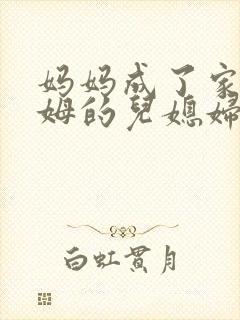 妈妈成了家
姆的兒媳婦
白虹贯月